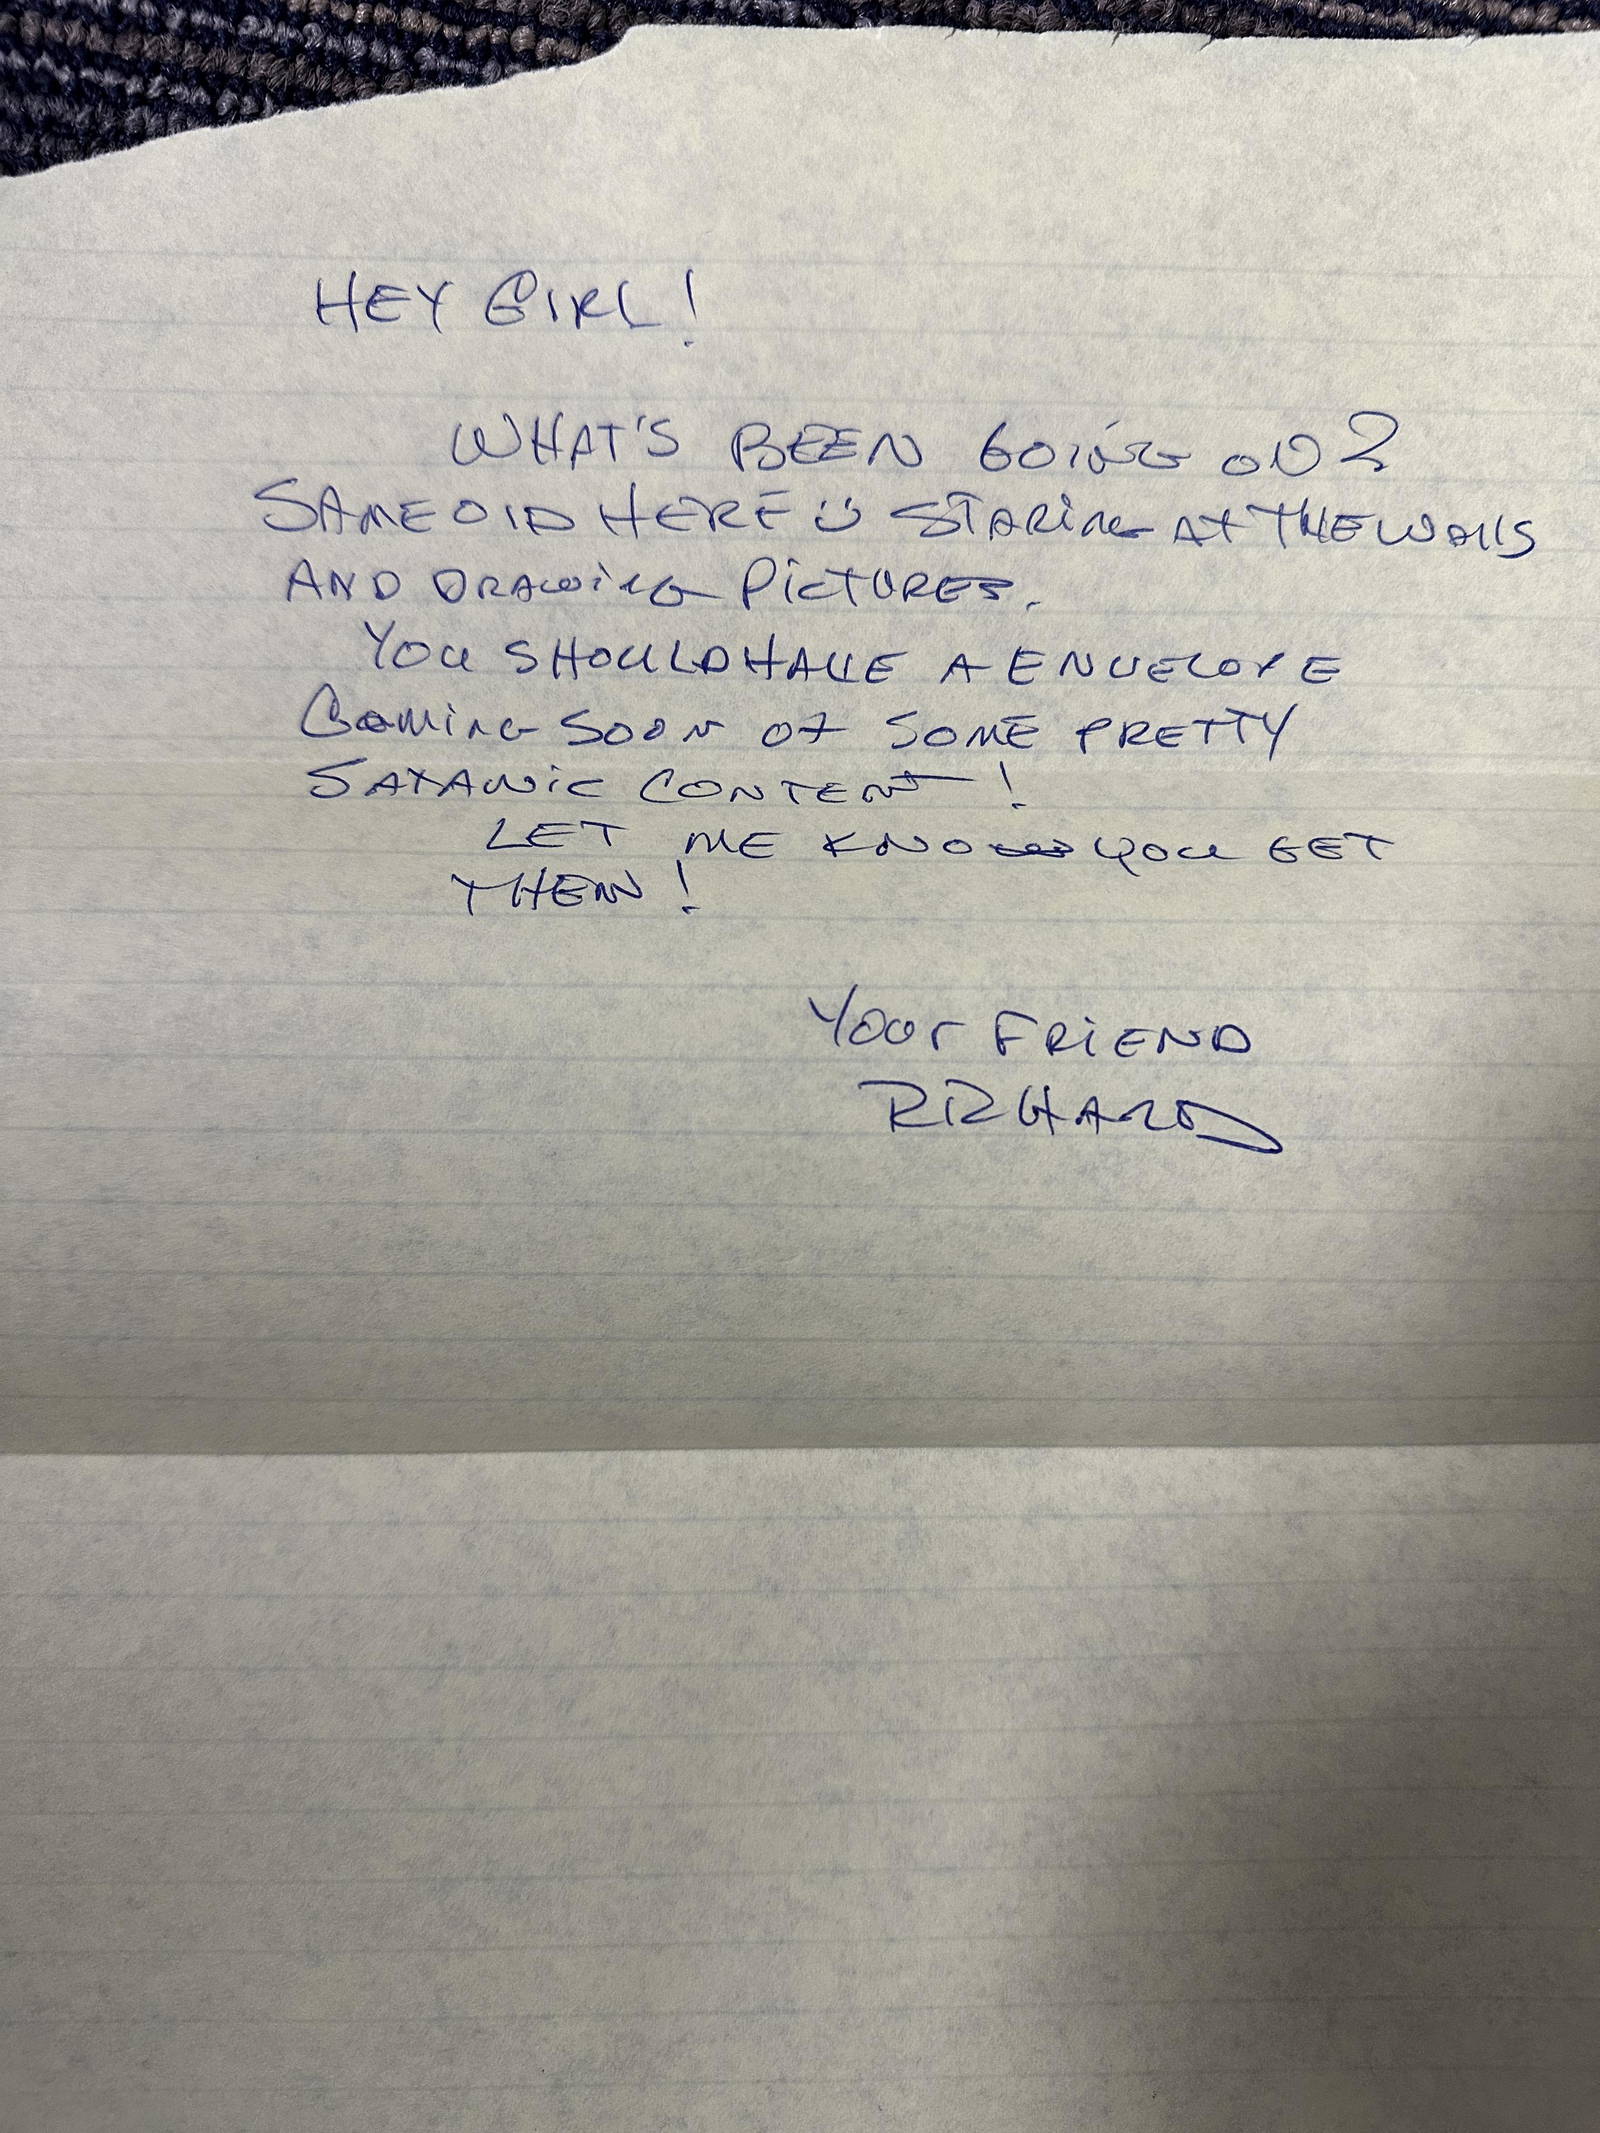 HEY GIRL!
WHAT'S BEEN GOING ON?
SAME OLD HERE Ü STARING AT THE WALLS
AND DRAWING PICTURES.
YOU SHOULD HAVE A ENVELOPE
COMING SOON OF SOME PRETTY
SATANIC CONTENT!
LET ME KNOW YOU GET
THEM!
YOUR FRIEND
RICHARD